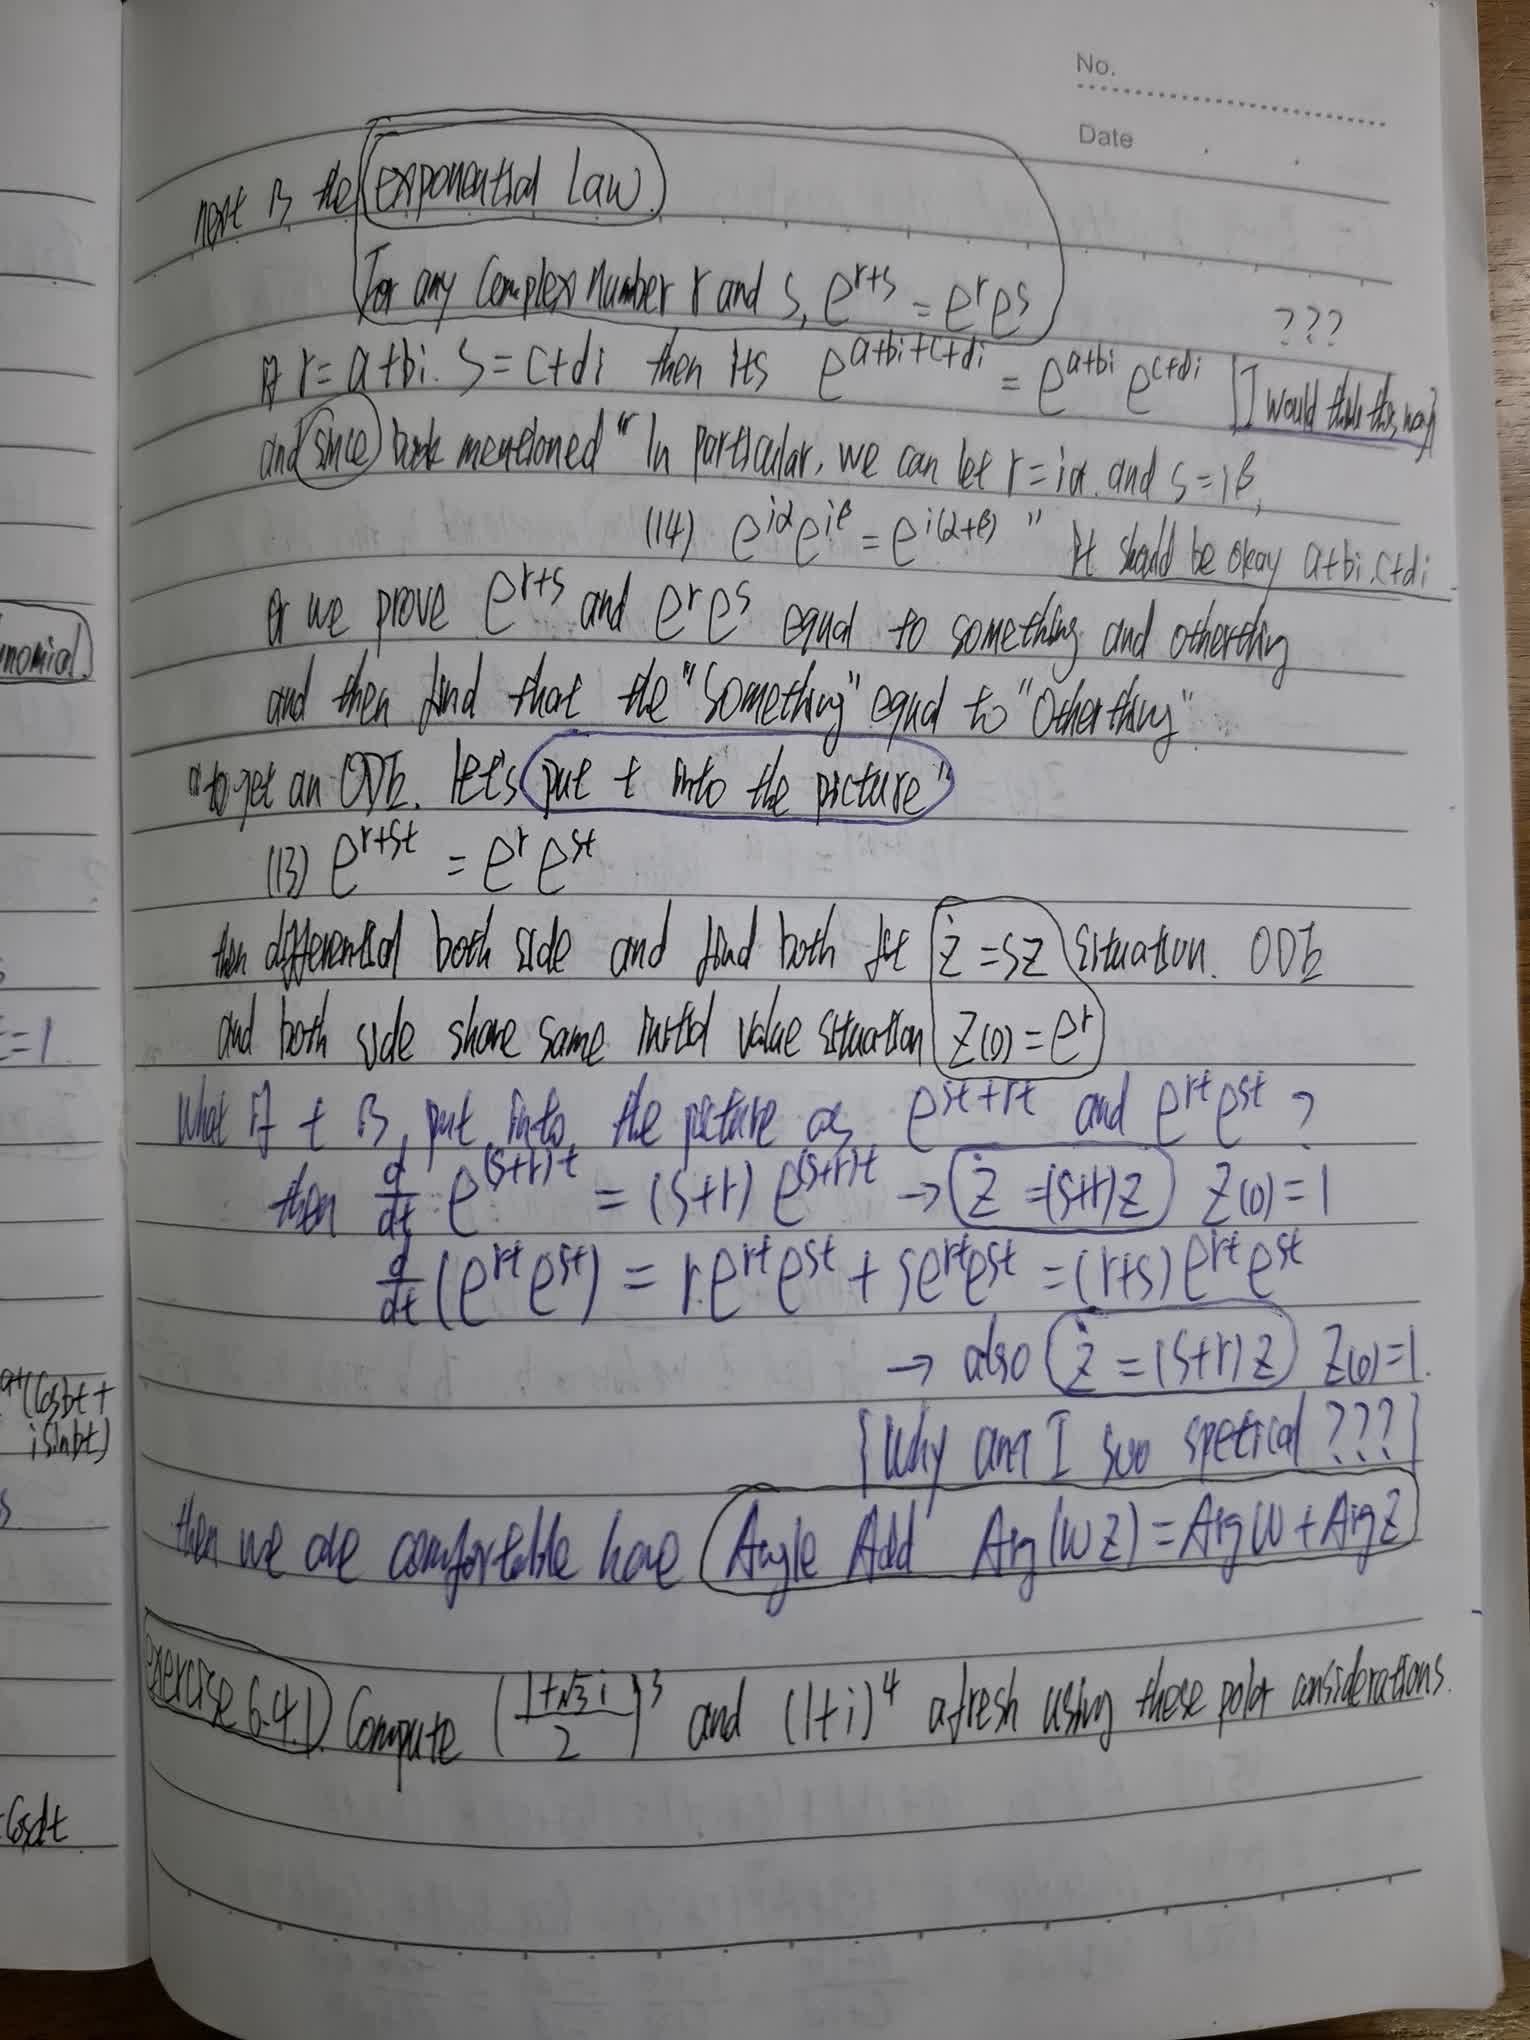 No.
Date
next is the exponential Law.
For any complex number r and s, e^{r+s} = e^r e^s
???
if r = a+bi. s = c+di then its e^{a+bi+c+di} = e^{a+bi} e^{c+di} [I would think this way]
and since book mentioned "In particular, we can let r = iα. and s = iβ,
(14) e^{iα} e^{iβ} = e^{i(α+β)} " It should be okay a+bi, c+di
or we prove e^{r+s} and e^r e^s equal to something and otherthing
and then find that the "something" equal to "otherthing"
"to get an ODE. let's put t into the picture"
(13) e^{r+st} = e^r e^{st}
then differential both side and find both fit ż = sz situation. ODE
and both side share same initial value situation z(0) = e^r
What if t is put into the picture as e^{st+rt} and e^{rt} e^{st} ?
then d/dt e^{(s+r)t} = (s+r) e^{(s+r)t} → ż = (s+r)z z(0) = 1
d/dt (e^{rt} e^{st}) = r e^{rt} e^{st} + s e^{rt} e^{st} = (r+s) e^{rt} e^{st}
→ also ż = (s+r)z z(0)=1.
[Why am I soo spetical ???]
then we are comfortable have Angle Add Arg(wz) = Arg w + Arg z
exercise 6.4.1) Compute ((1+√3 i)/2)^3 and (1+i)^4 afresh using these polar considerations.
nomial.
=1
at(cosbt +
i sinbt)
s
cosdt